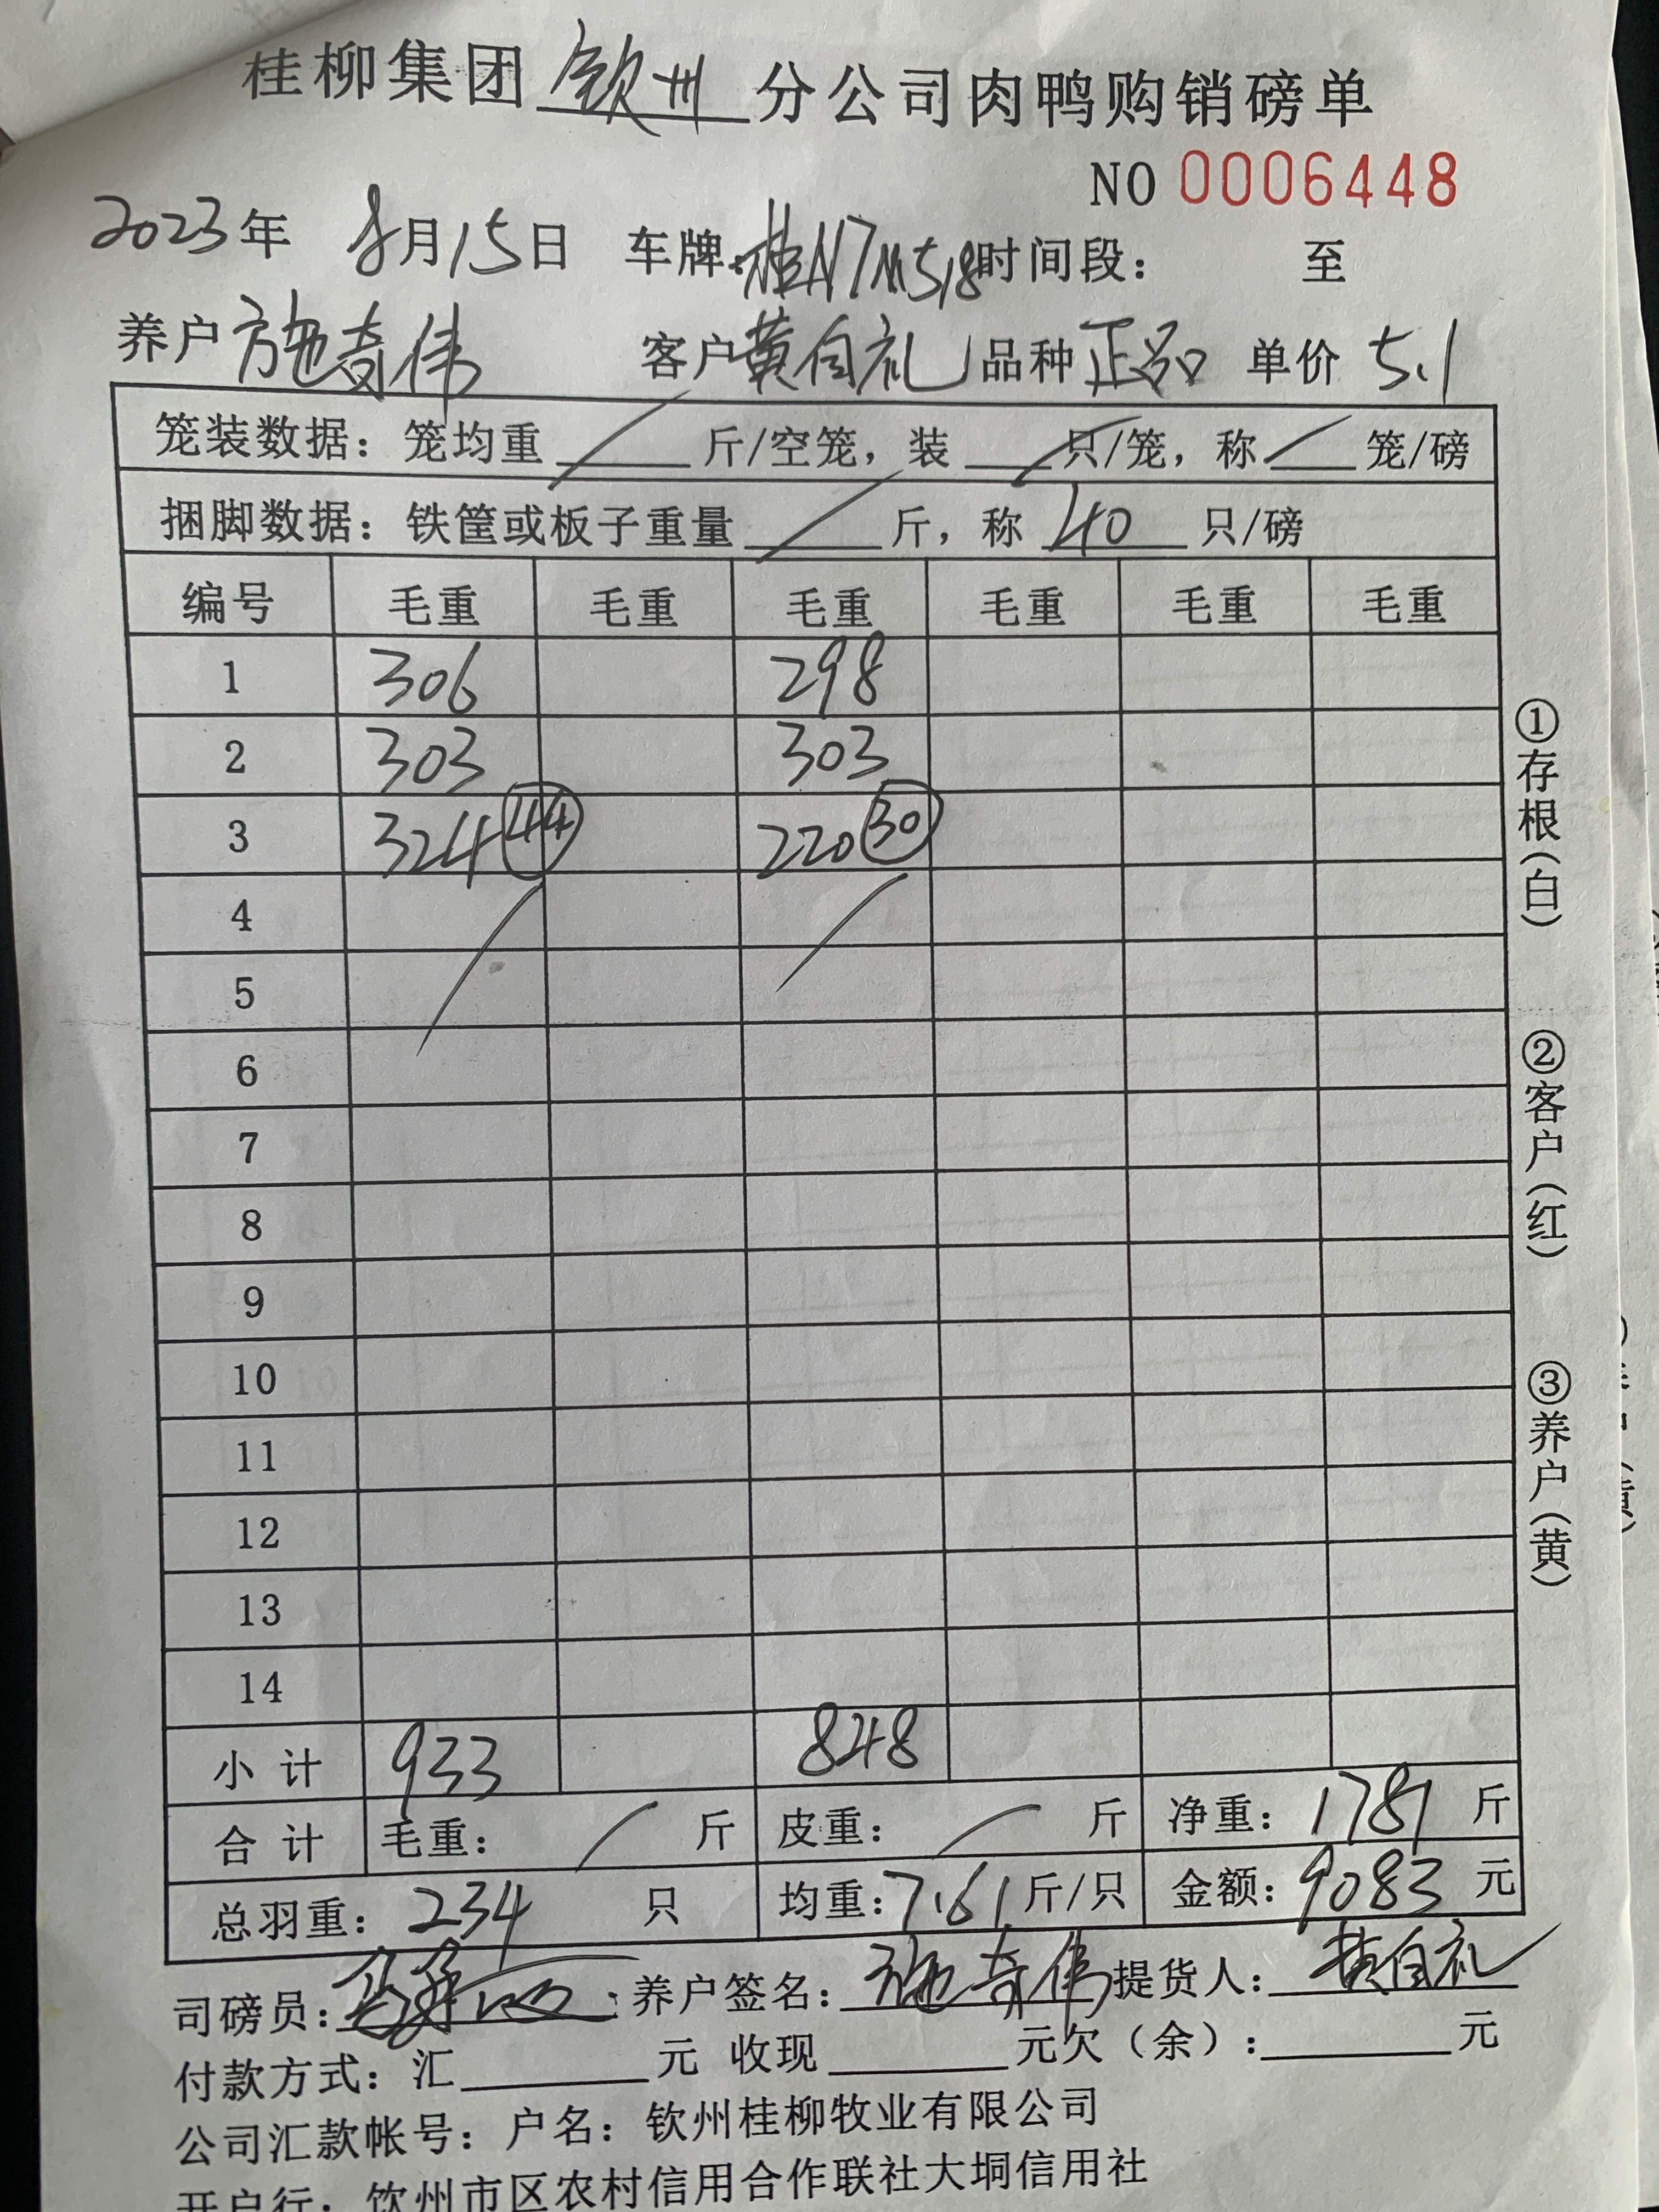 桂柳集团 钦州 分公司肉鸭购销磅单
NO 0006448
2023年 8月15日 车牌:桂N7M518 时间段: 至
养户 施奇伟 客户 黄自礼 品种 正品 单价 5.1
笼装数据: 笼均重 / 斤/空笼, 装 / 只/笼, 称 / 笼/磅
捆脚数据: 铁筐或板子重量 / 斤, 称 40 只/磅
编号 毛重 毛重 毛重 毛重 毛重 毛重
1 306 298
2 303 303
3 324 44 220 30
4
5
6
7
8
9
10
11
12
13
14
小计 933 848
合计 毛重: / 斤 皮重: / 斤 净重: 1781 斤
总羽重: 234 只 均重: 7.61 斤/只 金额: 9083 元
司磅员: 养户签名: 施奇伟 提货人: 黄自礼
付款方式: 汇______元 收现______元欠(余):______元
公司汇款帐号: 户名: 钦州桂柳牧业有限公司
开户行: 钦州市区农村信用合作联社大垌信用社
①存根(白)
②客户(红)
③养户(黄)